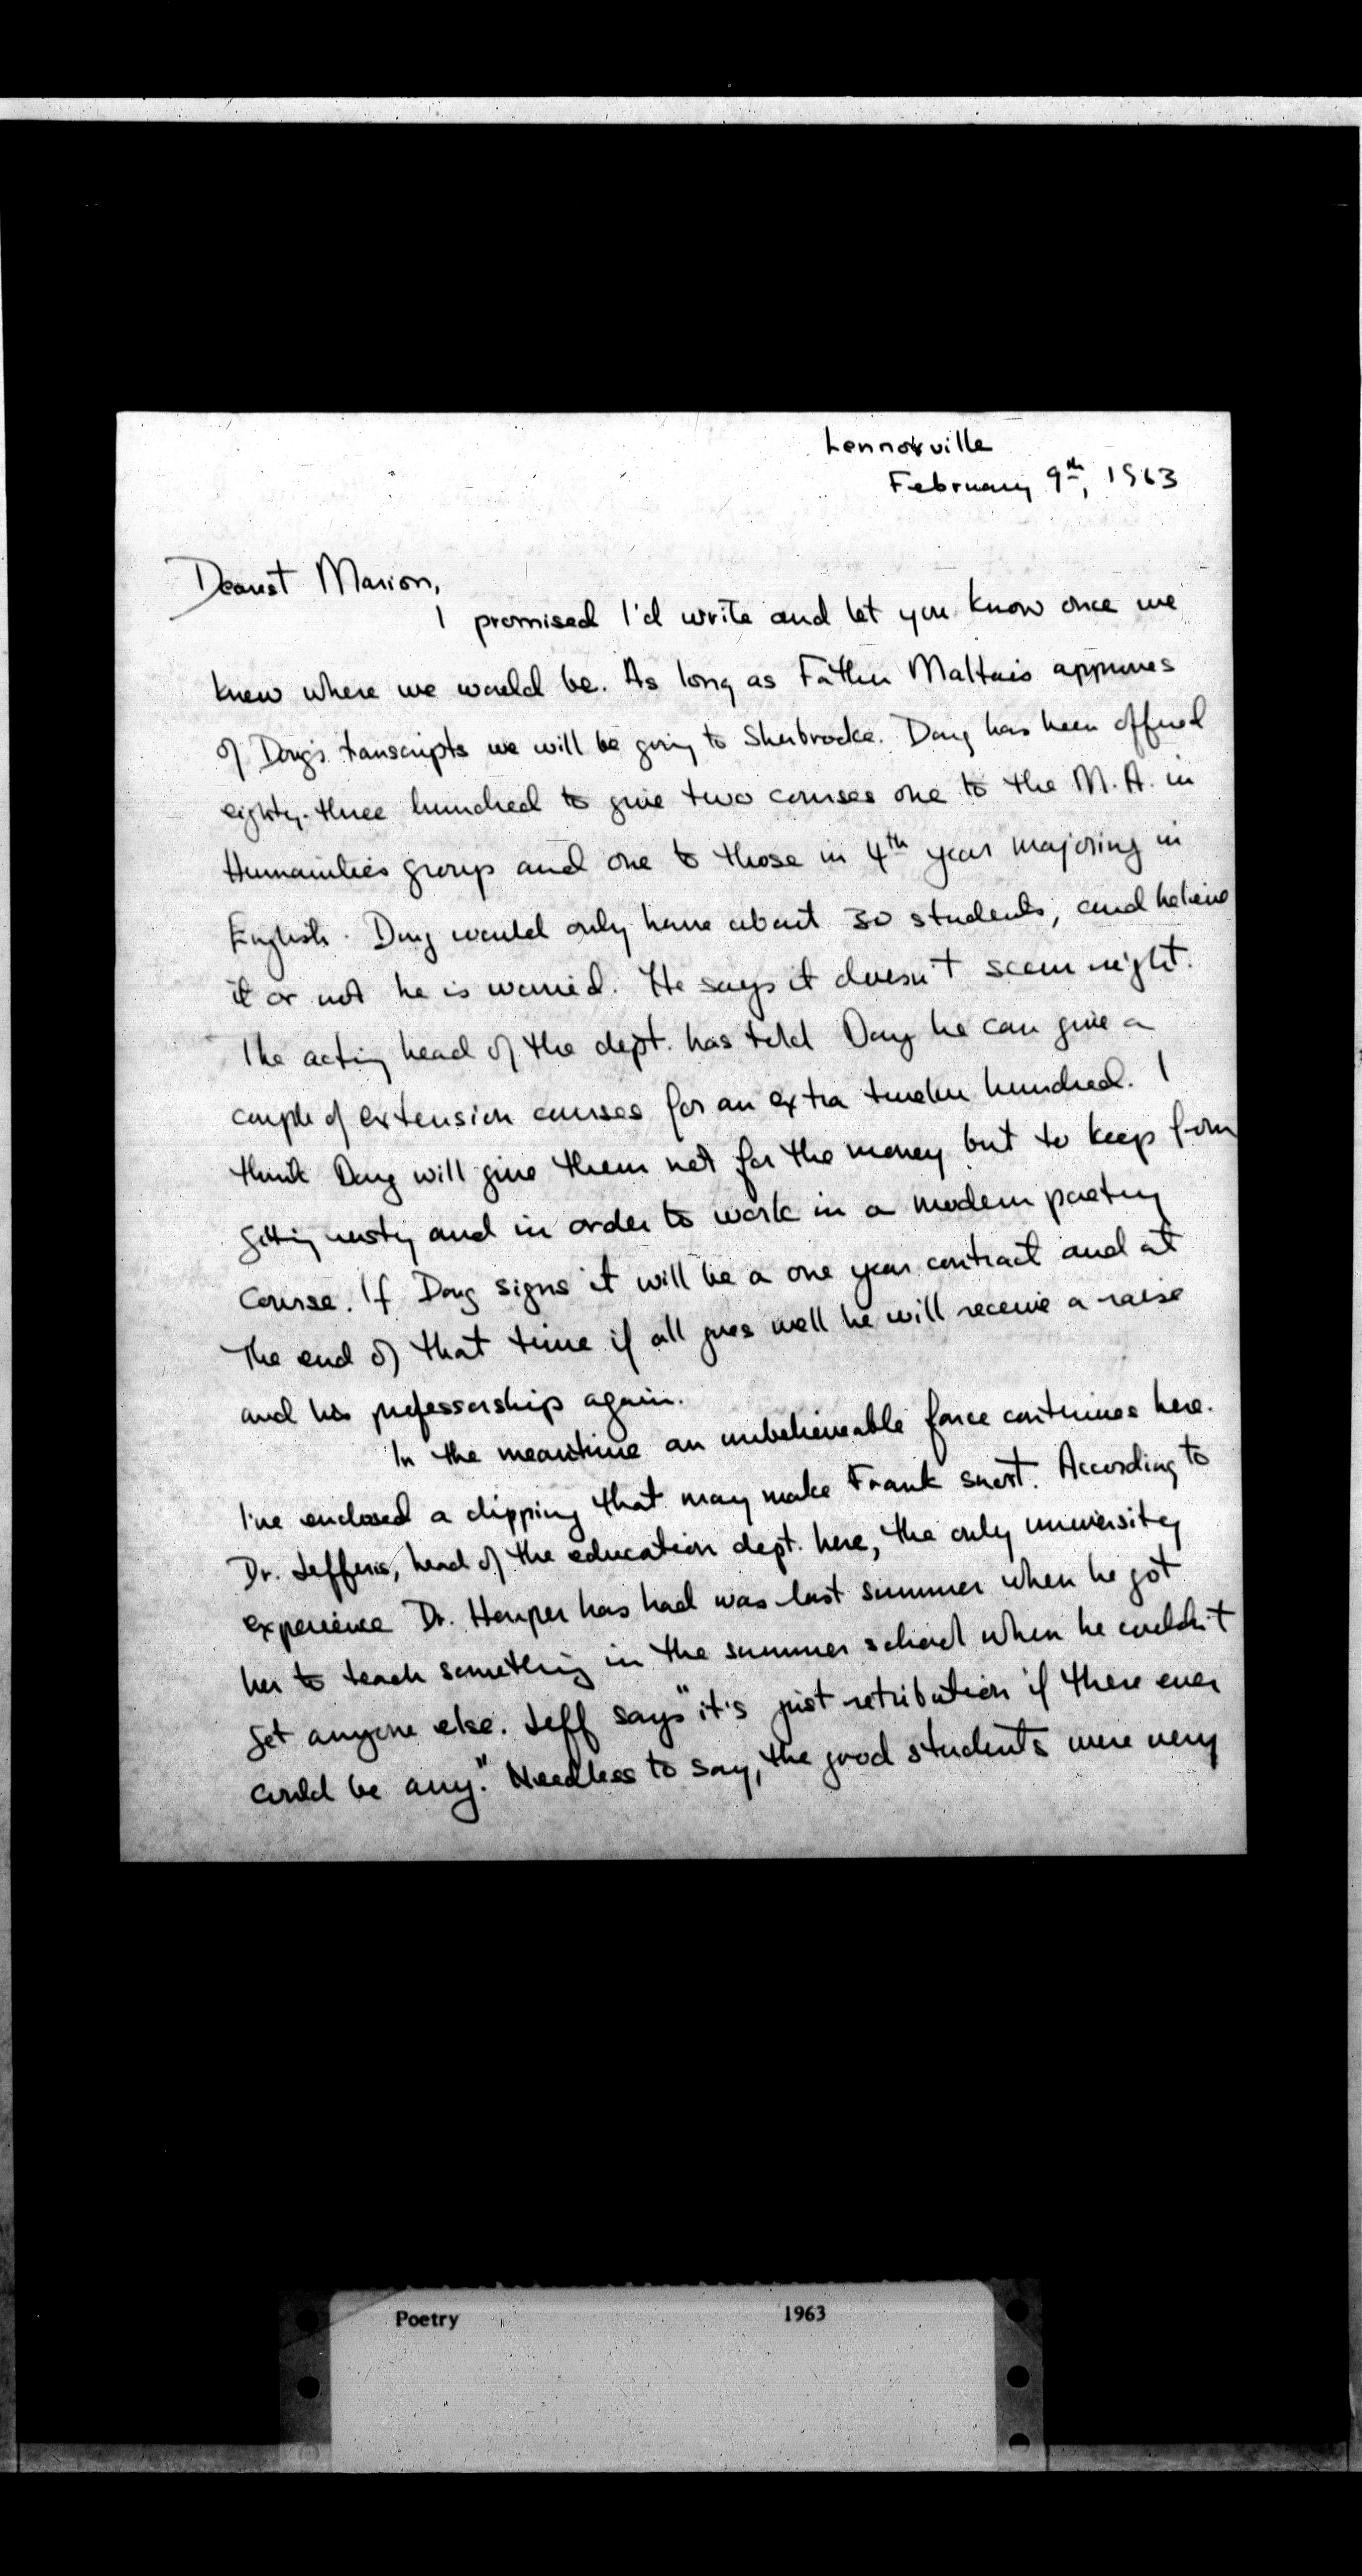 Lennoxville
February 9th, 1963
Dearest Marion,
I promised I'd write and let you know once we
knew where we would be. As long as Father Maltais approves
of Doug's transcripts we will be going to Sherbrooke. Doug has been offered
eighty-three hundred to give two courses one to the M.A. in
Humanities group and one to those in 4th year majoring in
English. Doug would only have about 30 students, and believe
it or not he is worried. He says it doesn't seem right.
The acting head of the dept. has told Doug he can give a
couple of extension courses for an extra twelve hundred. I
think Doug will give them not for the money but to keep from
getting rusty and in order to work in a modern poetry
course. If Doug signs it will be a one year contract and at
the end of that time if all goes well he will receive a raise
and his professorship again.
In the meantime an unbelieveable farce continues here.
I've enclosed a clipping that may make Frank snort. According to
Dr. Jefferis, head of the education dept. here, the only university
experience Dr. Harper has had was last summer when he got
her to teach something in the summer school when he couldn't
get anyone else. Jeff says "it's just retribution if there ever
could be any." Needless to say, the good students were very
Poetry 1963